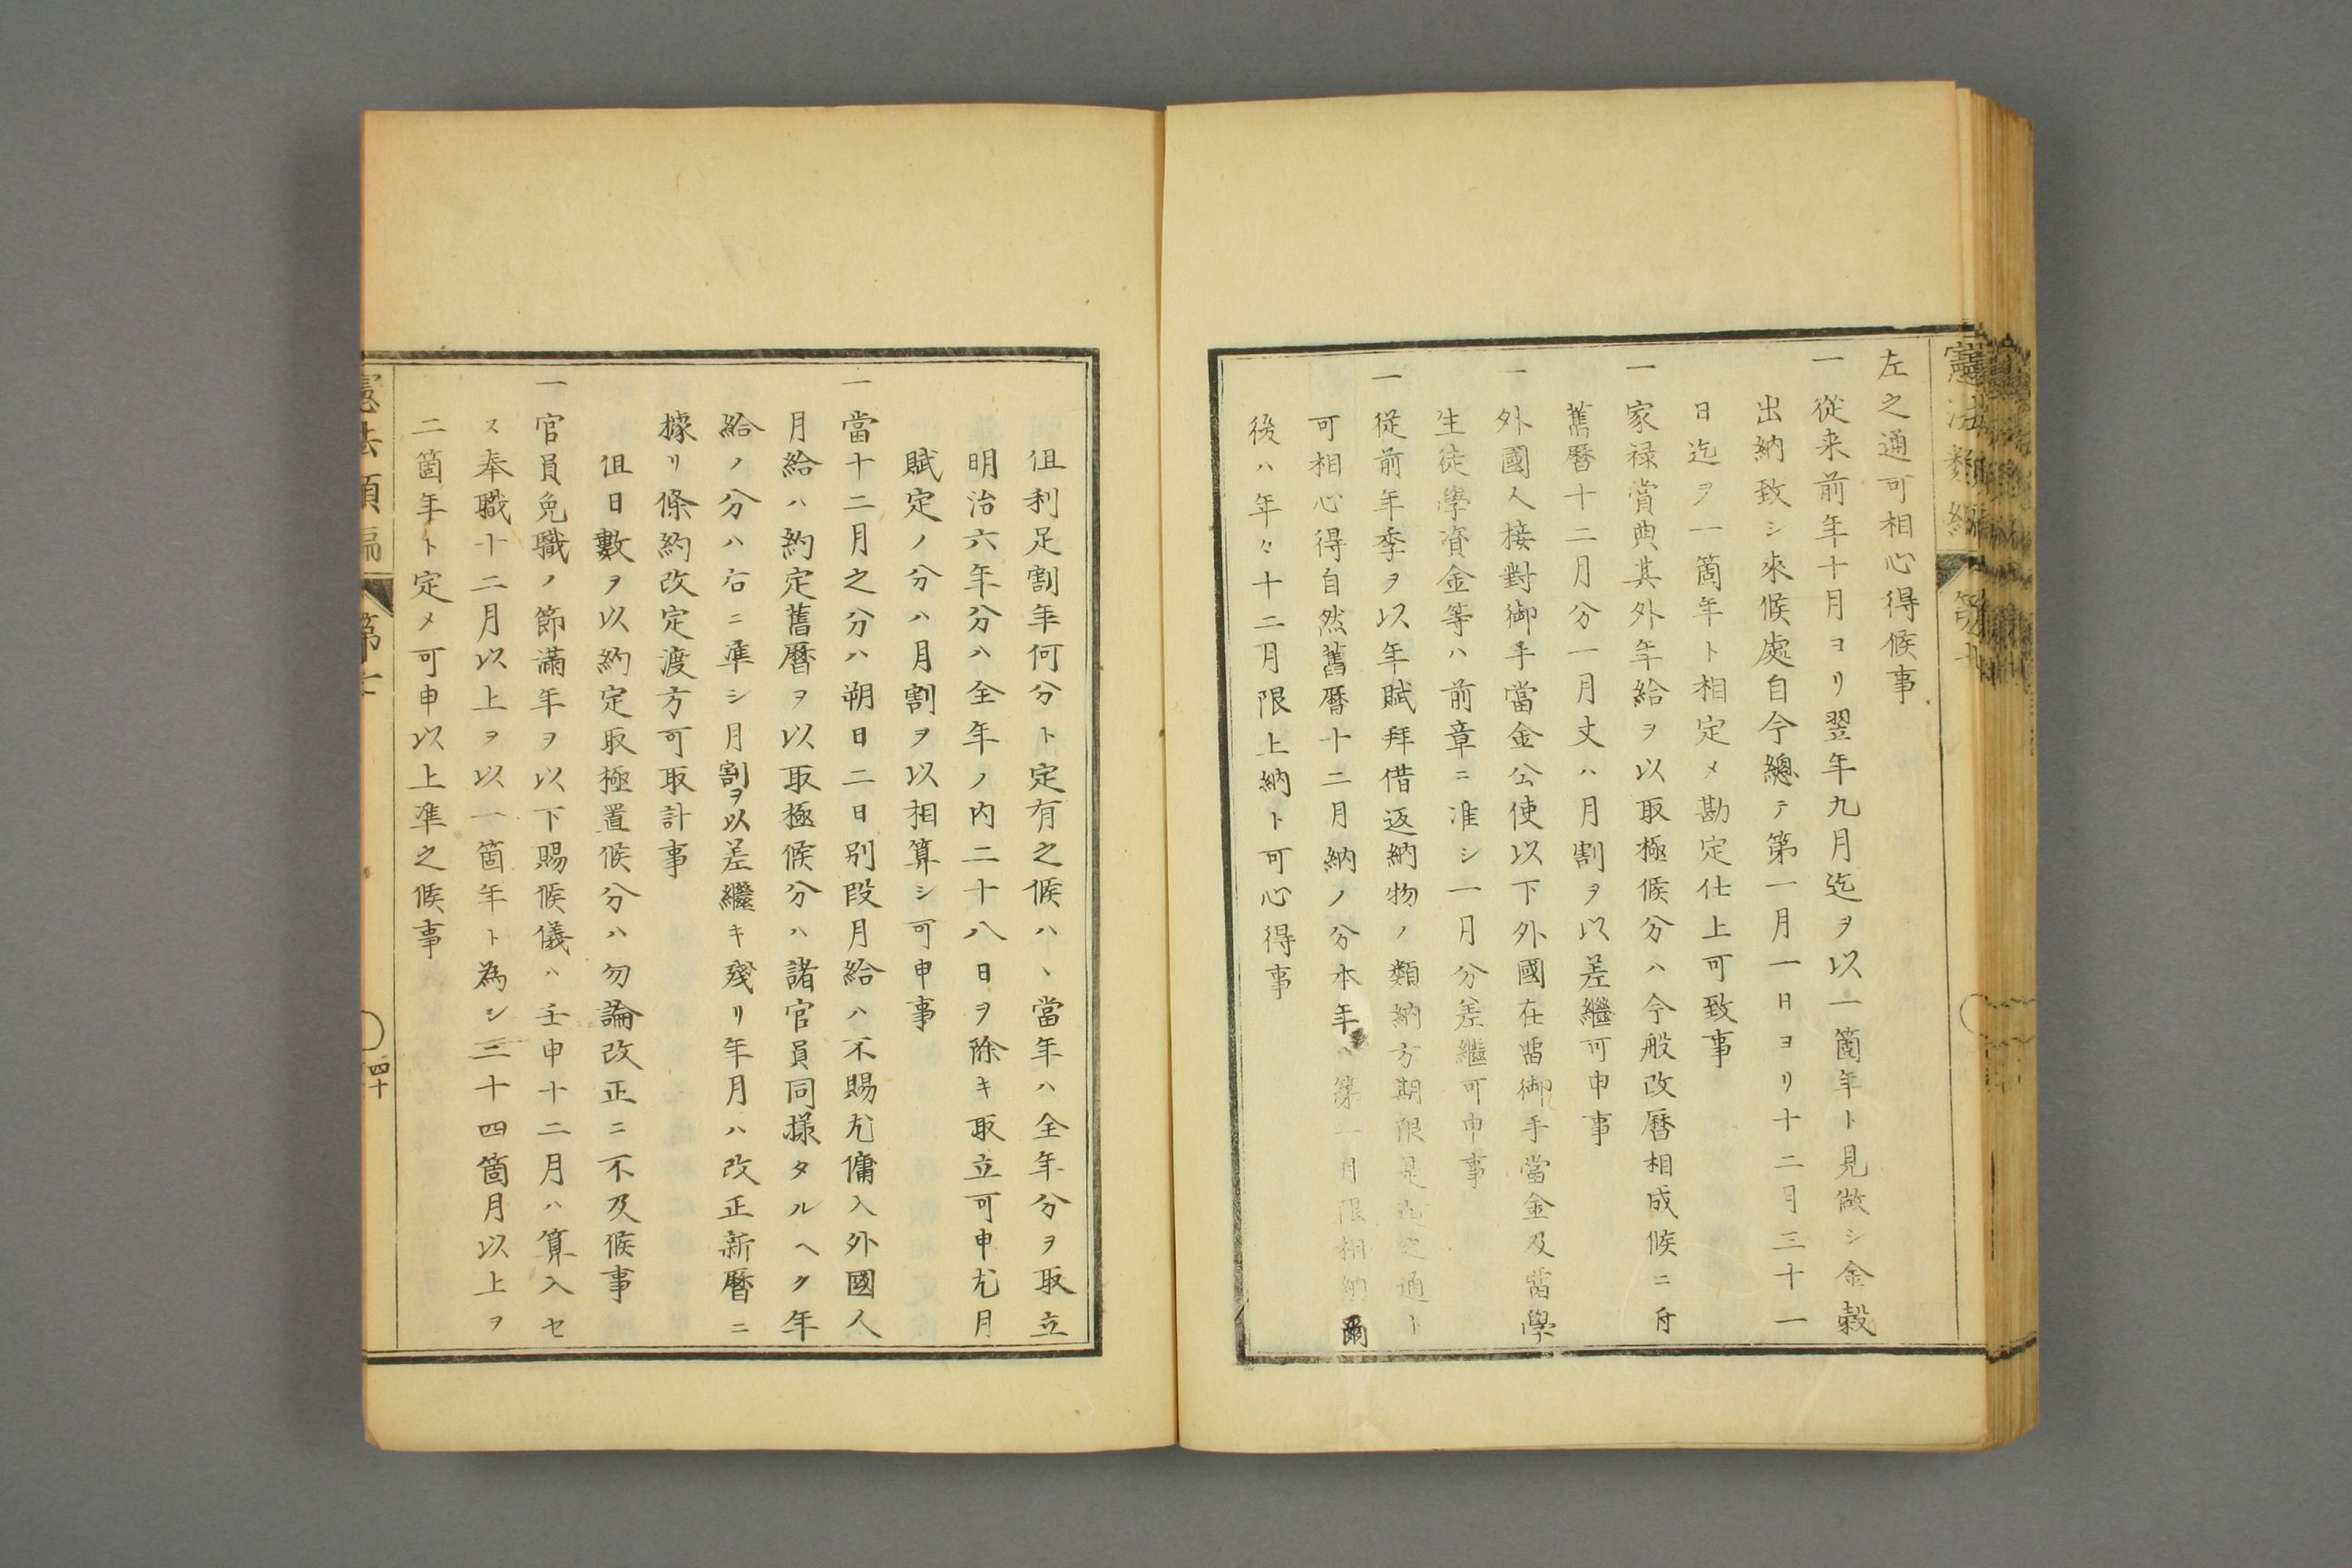 憲法類編
第十
左之通可相心得候事
一從来前年十月ヨリ翌年九月迄ヲ以一箇年ト見做シ金穀
出納致シ來候處自今總テ第一月一日ヨリ十二月三十一
日迄ヲ一箇年ト相定メ勘定仕上可致事
一家禄賞典其外年給ヲ以取極候分ハ今般改曆相成候ニ付
舊曆十二月分一月丈ハ月割ヲ以差繼可申事
一外國人接對御手當金公使以下外國在畱御手當金及畱學
生徒學資金等ハ前章ニ准シ一月分差繼可申事
一從前年季ヲ以年賦拜借返納物ノ類納方期限是迄之通ト
可相心得自然舊曆十二月納ノ分本年ハ第一月限相納爾
後ハ年々十二月限上納ト可心得事
但利足割年何分ト定有之候ハヽ當年ハ全年分ヲ取立
明治六年分ハ全年ノ内二十八日ヲ除キ取立可申尤月
賦定ノ分ハ月割ヲ以相算シ可申事
一當十二月之分ハ朔日二日別段月給ハ不賜尤傭入外國人
月給ハ約定舊曆ヲ以取極候分ハ諸官員同樣タルヘク年
給ノ分ハ右ニ準シ月割ヲ以差繼キ殘リ年月ハ改正新曆ニ
據リ條約改定渡方可取計事
但日數ヲ以約定取極置候分ハ勿論改正ニ不及候事
一官員免職ノ節滿年ヲ以下賜候儀ハ壬申十二月ハ算入セ
ス奉職十二月以上ヲ以一箇年ト為シ二十四箇月以上ヲ
二箇年ト定メ可申以上準之候事
憲法類編
第十
四十